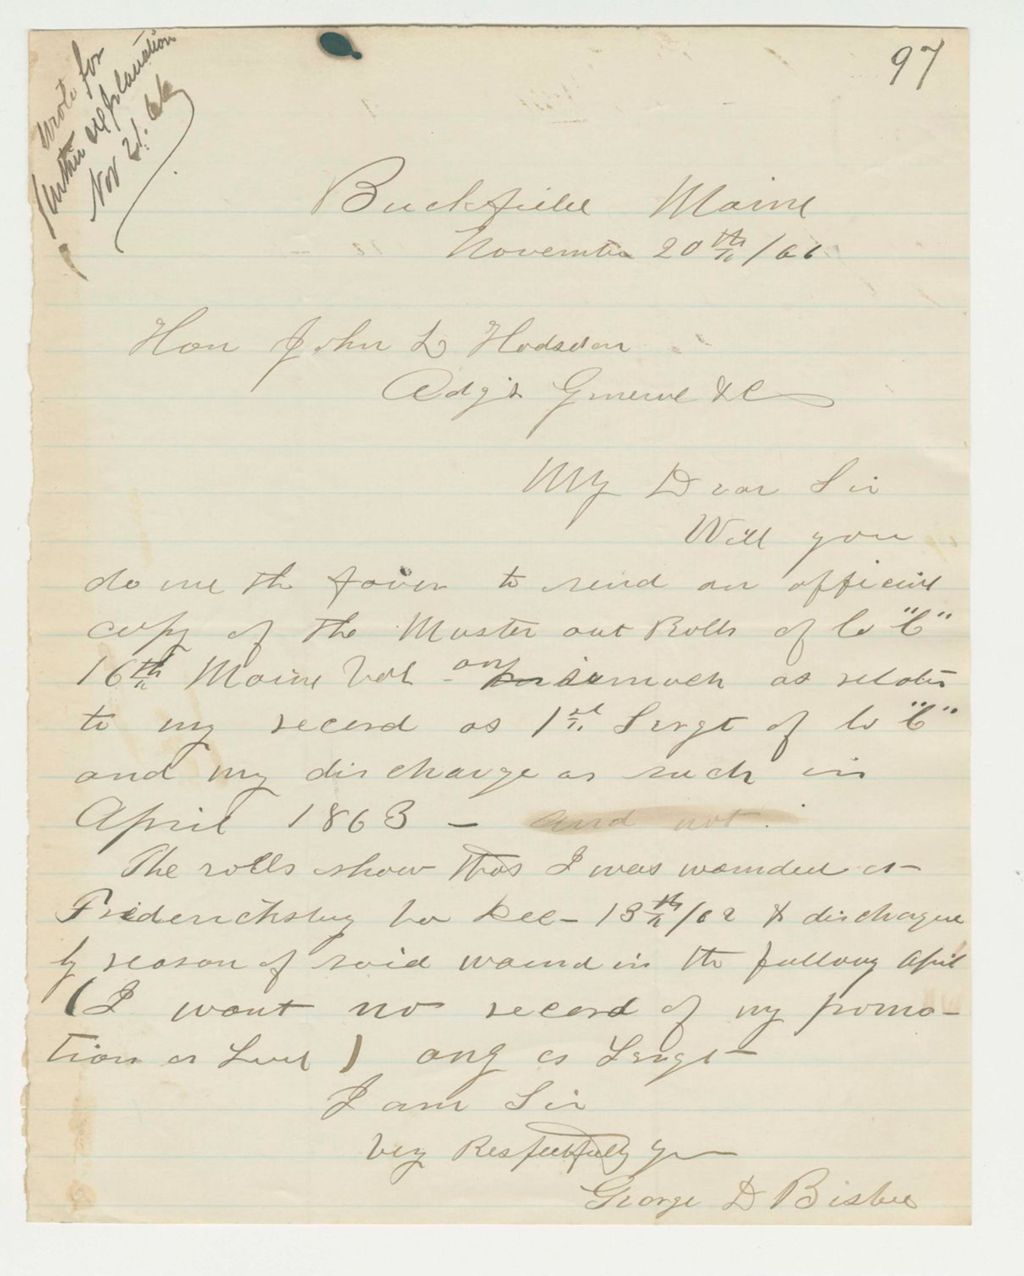 97
Wrote for
further explanation
Nov 21. 66
Buckfield Maine
November 20th /66
Hon John L Hodsdon
Adj't General &C
My Dear Sir
Will you
do me the favor to send an official
copy of the Muster out Rolls of Co "C"
16th Maine Vols - only insomuch as relates
to my record as 1st Sergt of Co "C"
and my discharge as such in
April 1863 - and not
The rolls show that I was wounded at
Fredericksburg Va Dec- 13th/62 & discharged
by reason of said wound in the following April
(I want no record of my promo-
tion as Lieut) only as Sergt-
I am Sir
Very Respectfully Yr
George D Bisbee